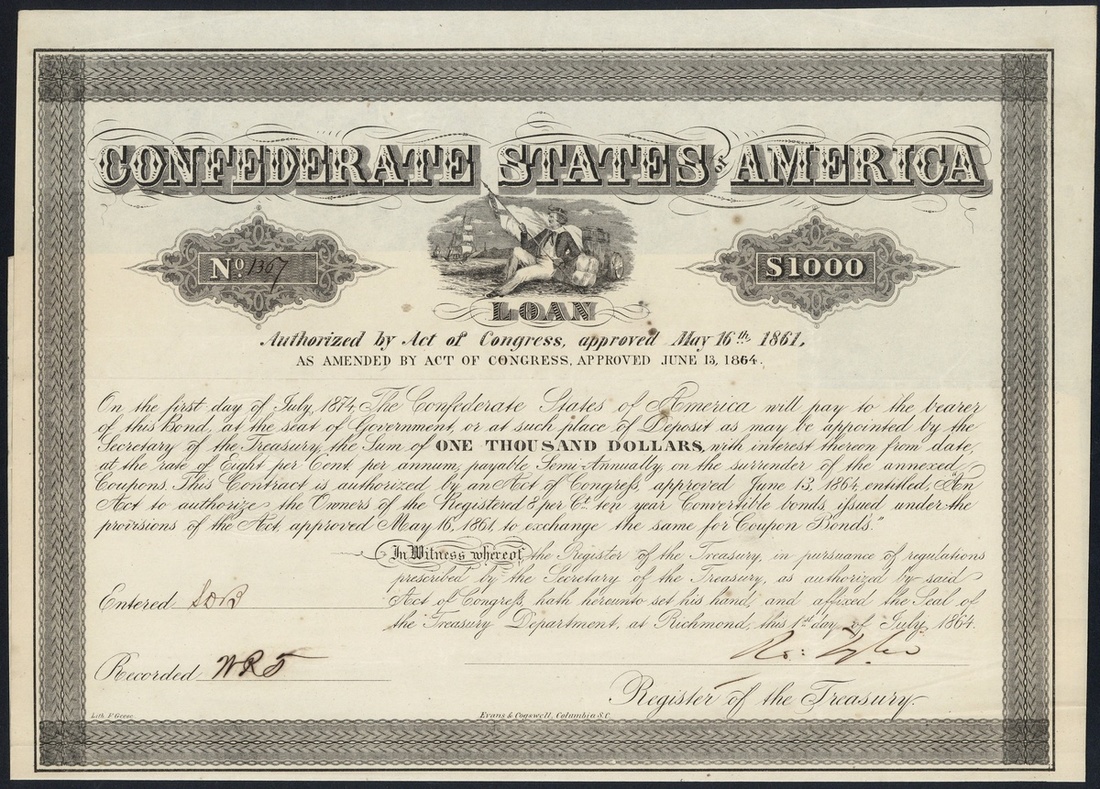 CONFEDERATE STATES of AMERICA
No 1367
$1000
LOAN
Authorized by Act of Congress, approved May 16th 1861,
AS AMENDED BY ACT OF CONGRESS, APPROVED JUNE 13, 1864.
On the first day of July, 1874, The Confederate States of America will pay to the bearer
of this Bond, at the seat of Government, or at such place of Deposit as may be appointed by the
Secretary of the Treasury, the Sum of ONE THOUSAND DOLLARS, with interest thereon from date,
at the rate of Eight per Cent. per annum, payable Semi-Annually, on the surrender of the annexed
Coupons. This Contract is authorized by an Act of Congress, approved June 13, 1864, entitled, "An
Act to authorize the Owners of the Registered 8 per Ct. ten year Convertible bonds, issued under the
provisions of the Act, approved May 16, 1861, to exchange the same for Coupon Bonds."
In Witness whereof the Register of the Treasury, in pursuance of regulations
prescribed by the Secretary of the Treasury, as authorized by said
Act of Congress, hath hereunto set his hand, and affixed the Seal of
the Treasury Department, at Richmond, this 1st day of July, 1864.
Entered
Recorded WRS
Ro: Tyler
Register of the Treasury.
Lith. F. Geese.
Evans & Cogswell, Columbia S.C.